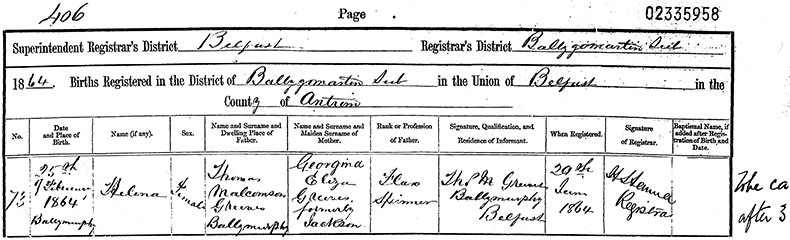 406 Page 02335958
Superintendent Registrar's District Belfast Registrar's District Ballygomartin
1864. Births Registered in the District of Ballygomartin in the Union of Belfast in the
County of Antrim
No. Date and Place of Birth. Name (if any). Sex. Name and Surname and Dwelling Place of Father. Name and Surname and Maiden Surname of Mother. Rank or Profession of Father. Signature, Qualification, and Residence of Informant. When Registered. Signature of Registrar. Baptismal Name, if added after Registration of Birth, and Date.
73
25th
1864
Ballymurphy
Helena
Female
Thomas
Malcomson
Greeves
Ballymurphy
Georgina
Eliza
Greeves
formerly
Jackson
Flax
Spinner
Thos M Greeves
Ballymurphy
Belfast
20th
1864
Registrar
To be ca
after 3